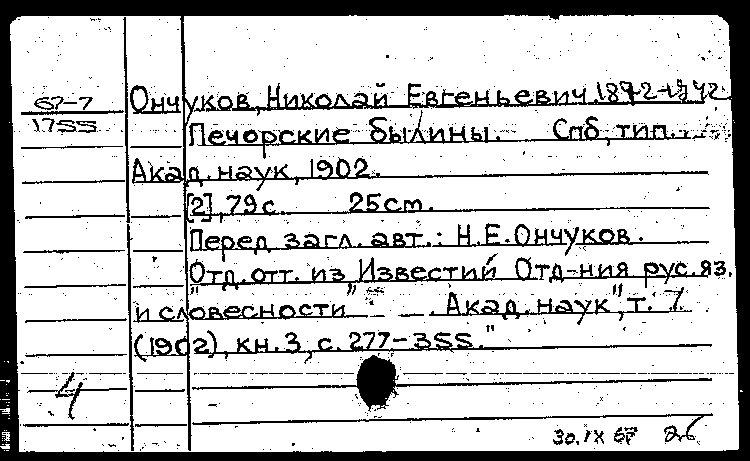 67-7
1755
Ончуков, Николай Евгеньевич. 1872-1942
Печорские былины. Спб, тип.
Акад. наук, 1902.
[2], 79 с. 25 cm.
Перед загл. авт.: Н.Е.Ончуков.
"Отд. отт. из "Известий Отд-ния рус. яз.
и словесности" . Акад. наук", т. 7
(1902), кн. 3, с. 277-355."
4
30.IX 67